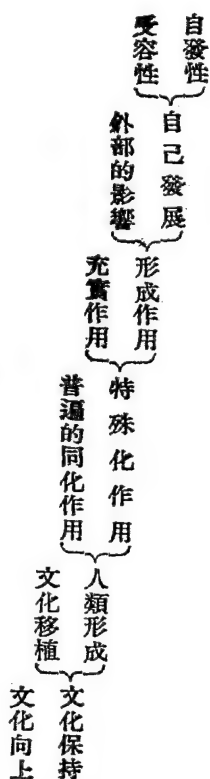 自發性
受容性
自己發展
外部的影響
形成作用
充實作用
特殊化作用
普遍的同化作用
人類形成
文化移植
文化保持
文化向上